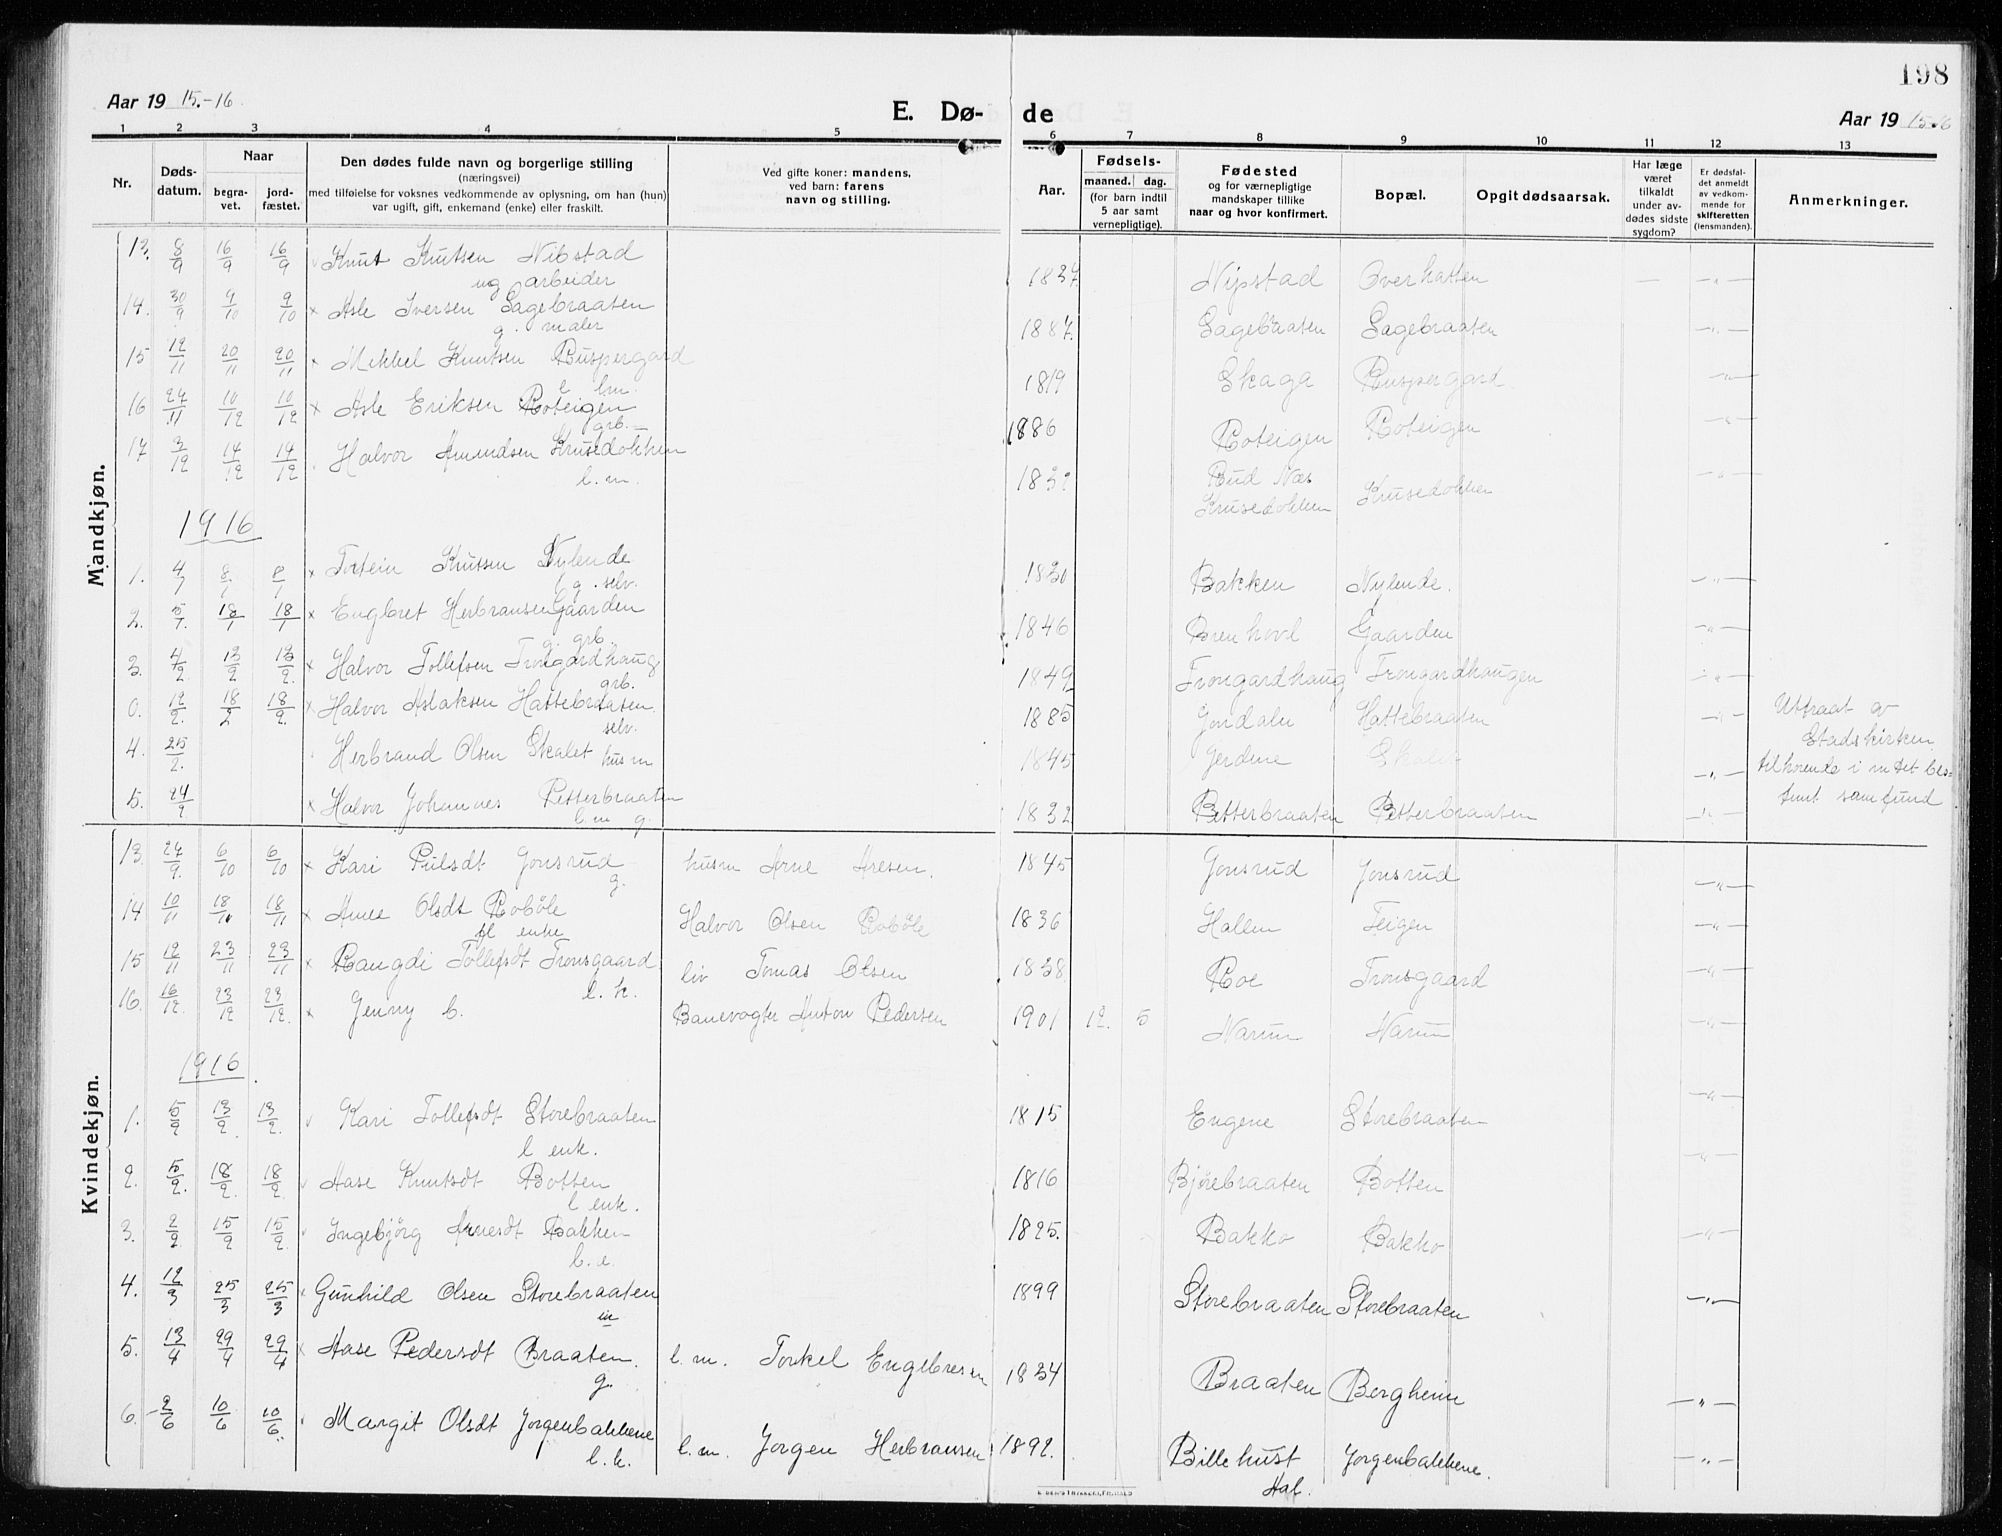 198
Aar 19 15.-16
E. Dø-
de
Aar 19 15-16
1 2 3 4 5 6 7 8 9 10 11 12 13
Nr.
Døds-
datum.
Naar
begra-
vet.
jord-
fæstet.
Den dødes fulde navn og borgerlige stilling
(næringsvei)
med tilføielse for voksnes vedkommende av oplysning, om han (hun)
var ugift, gift, enkemand (enke) eller fraskilt.
Ved gifte koner: mandens,
ved barn: farens
navn og stilling.
Aar.
Fødsels-
maaned. dag.
(for barn indtil
5 aar samt
vernepligtige).
Fødested
og for værnepligtige
mandskaper tillike
naar og hvor konfirmert.
Bopæl.
Opgit dødsaarsak.
Har læge
været
tilkaldt
under av-
dødes sidste
sygdom?
Er dødsfal-
det anmeldt
av vedkom-
mende for
skifteretten
(lensmanden).
Anmerkninger.
Mandkjøn.
13. 8/9 16/9 16/9 Knut Knutsen Nibstad 1837. Nipstad Overhatten — -"-
ug arbeider
14. 30/9 9/10 9/10 x Asle Iversen Sagebraaten 1887. Sagebraaten Sagebraaten -"-
g. maler
15 12/11 20/11 20/11 x Mikkel Knutsen Ruspergard 1819 Skaga Ruspergard -"-
l lm.
16 24/11 10/12 10/12 x Asle Eriksen Roteigen 1886 Roteigen Roteigen -"-
grb.
17 3/12 14/12 14/12 Halvor Amundsen Krusedokken 183 Rud Næs Krusedokken -"-
l. m. Krusedokken
1916
1. 4/1 8/1 8/1 x Knutsen Nylende 1830 Bakken Nylende. -"-
g. selv.
2. 5/1. 18/1 18/1 x Engbret Herbransen Gaarden 1846 Brenhovl Gaarden -"-
g. grb.
3. 4/2 13/2 13/2. x Halvor Tollefsen Trongardhaug 1849 Trongardhaug Trongardhaugen -"-
grb.
0. 12/2. 18/2 18/2. x Halvor Aslaksen Hattebraaten. 1885 Hattebraaten -"- Uttraat av
selv. Stadskirken
4. 25/2. Herbrand Olsen Skalet husm 1845 Jerdene -"- tilhørende intet bes-
5. 24/2 x Halvor Johannes Petterbraaten 1832 Petterbraaten Petterbraaten -"- temt samfund
l. m g.
Kvindekjøn.
13. 24/9. 6/10 6/10 x Kari Jonsrud husm Arne Aresen. 1845 Jonsrud Jonsrud -"-
g.
14 10/11 18/11 18/11 x Olsdt Robøle Halvor Olsen Robøle 1836 Hallem Teigen -"-
enke
15 12/11 23/11 23/11 x Rangdi Tollefsdt Tronsgaard liv Tomas Olsen 1838 Roe Tronsgaard -"-
l. k.
16. 16/12. 23/12 23/12. x Jenny C. Banevogter Anton Pedersen 1901 12. 5 Narum Narum -"-
1916.
1. 5/2 13/2. 13/2. Kari Tollefsdt Storebraaten 1815 Engene Storebraaten -"-
l enk.
2. 5/2. 18/2. 18/2 Aase Knutsdt Botten 1816 Bjørebraaten Botten -"-
l enk.
3. 2/2 15/2 15/2. Ingebjørg Arnesdt Bakken 1825. Bakko Bakko -"-
l. e.
4. 12/3 25/3 25/3 x Gunhild Olsen Storebraaten 1899 Storebraaten Storebraaten -"-
5. 13/4 29/4 29/4 x Aase Pedersdt Braaten. l. m. Torkel Engebresen 1834 Braaten Bergheim -"-
g.
6. 2/6 10/6 10/6. Margit Olsdt Jorgenbakkene l. m. Jorgen Herbransen 1892. Billehust Jorgenbakkene. -"-
l. k. Hal.